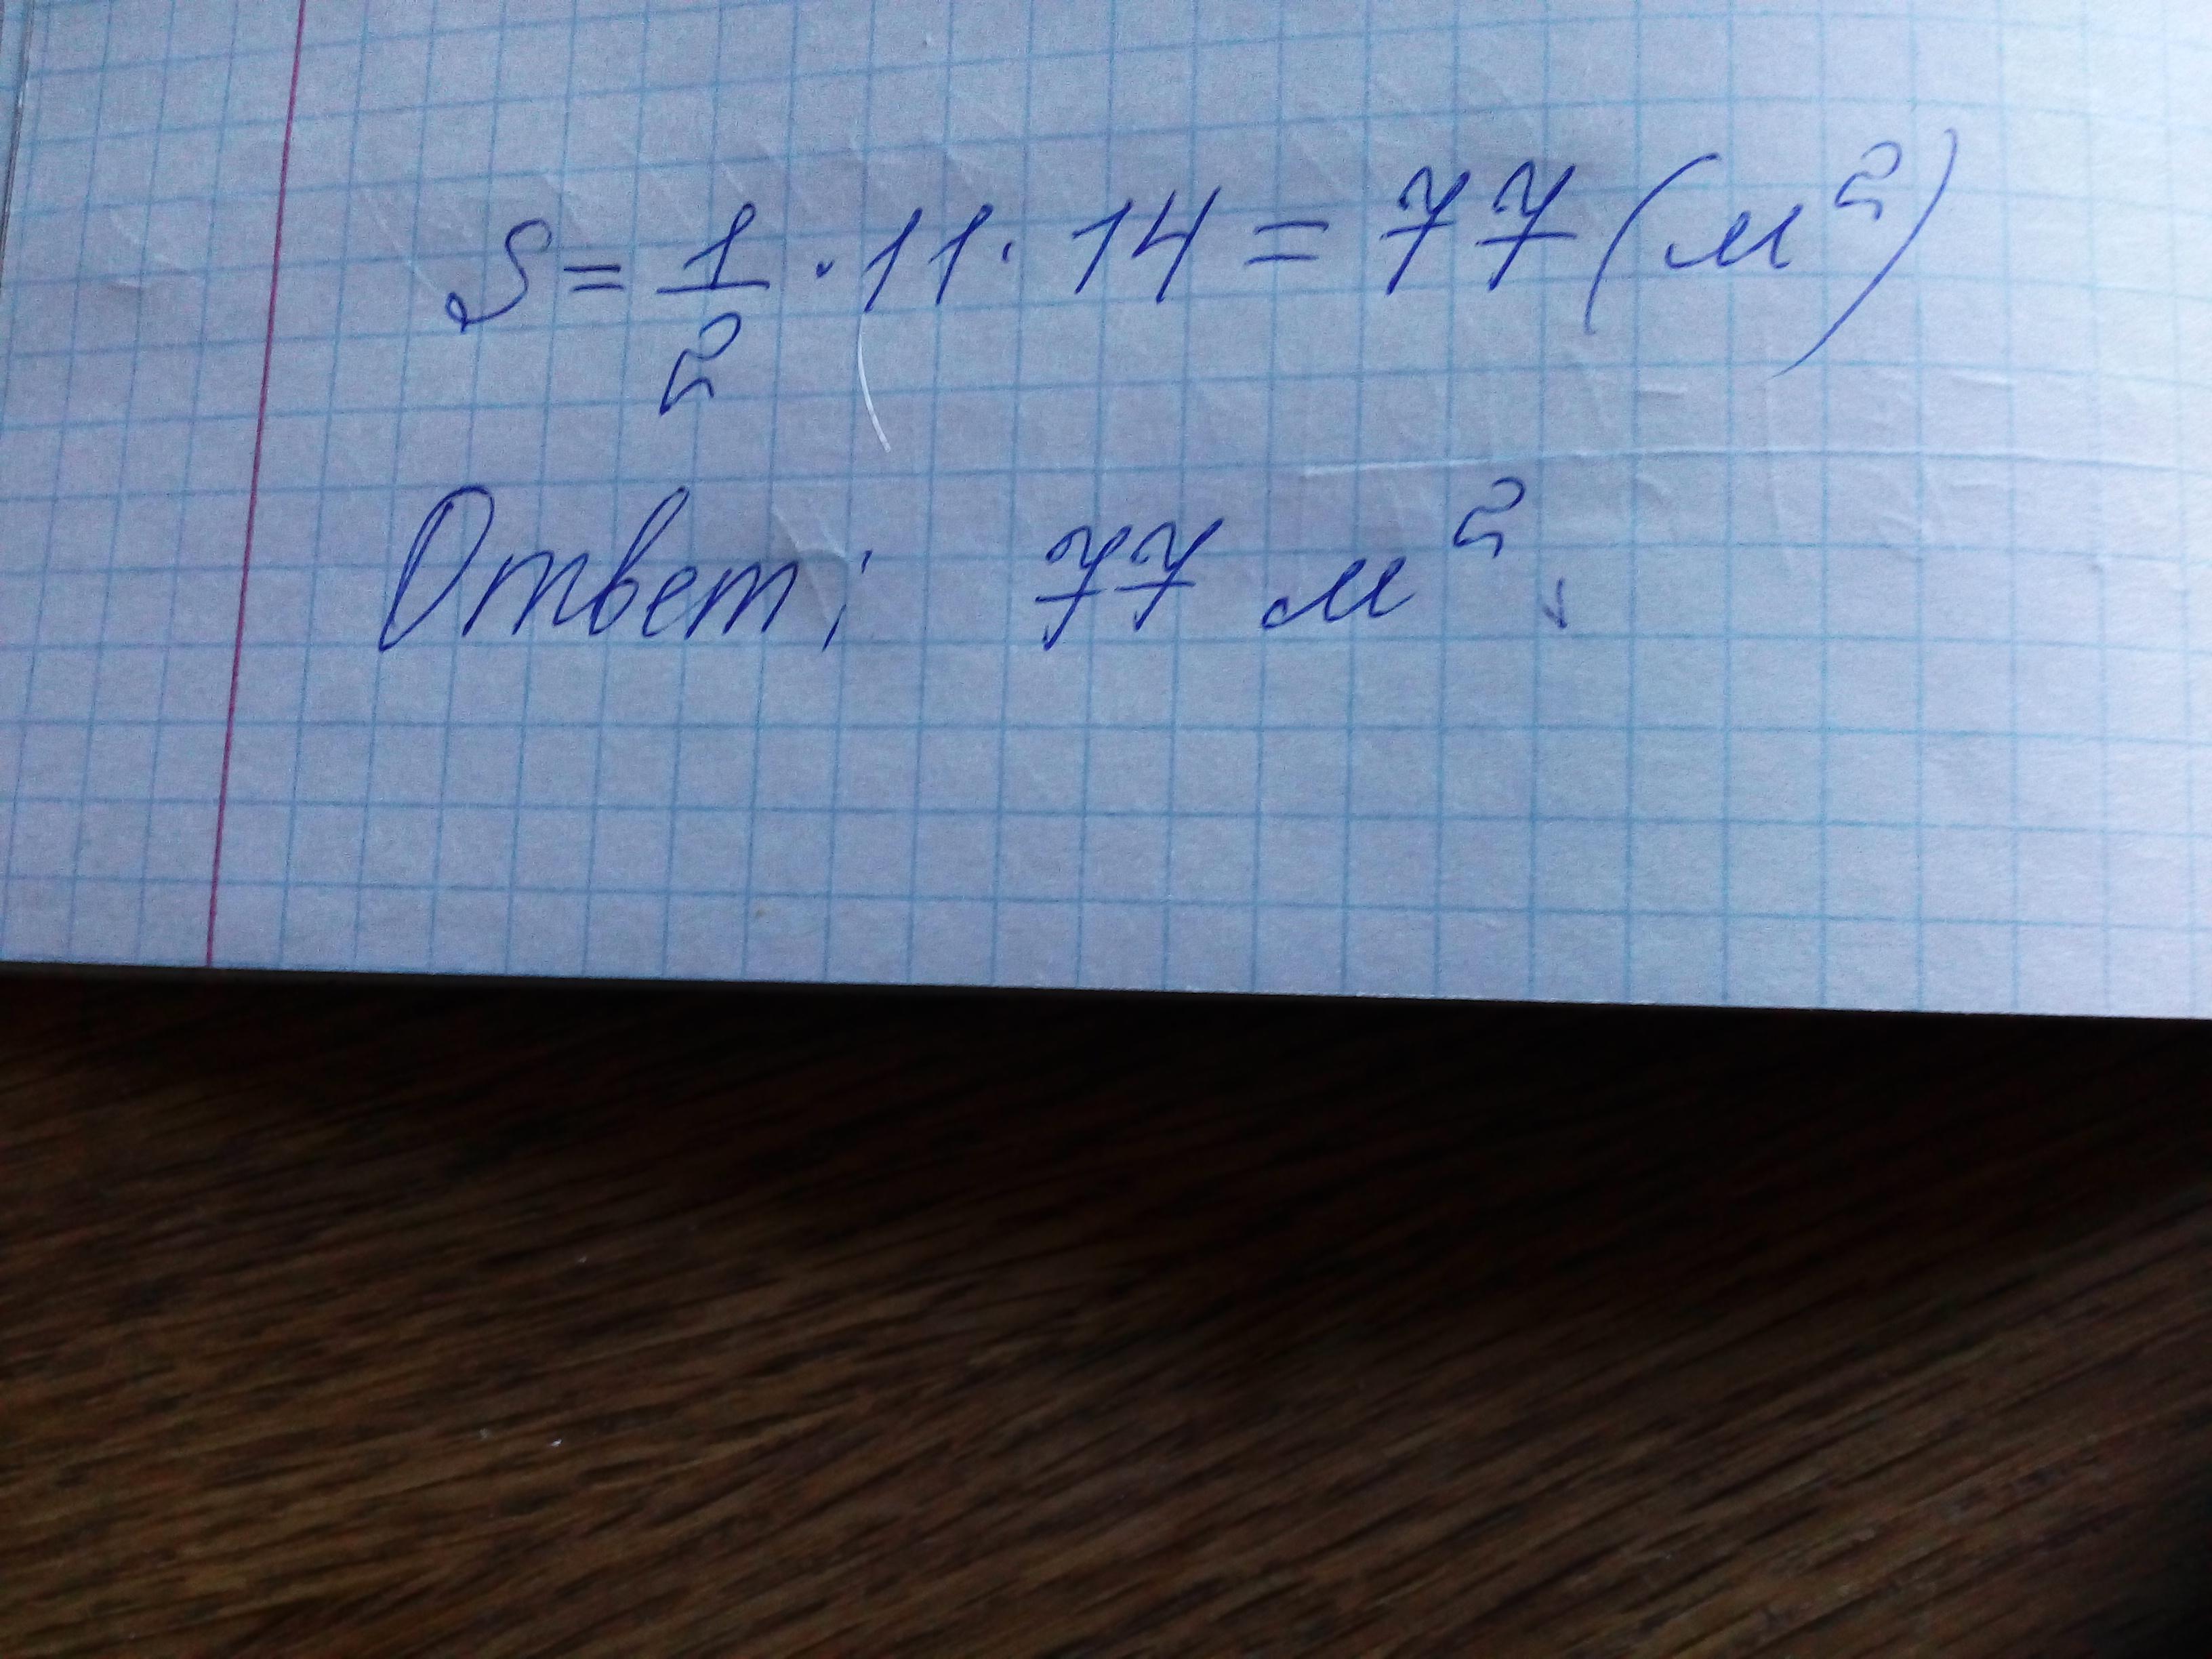 S = 1/2 · 11 · 14 = 77 (м²)
Ответ: 77 м².